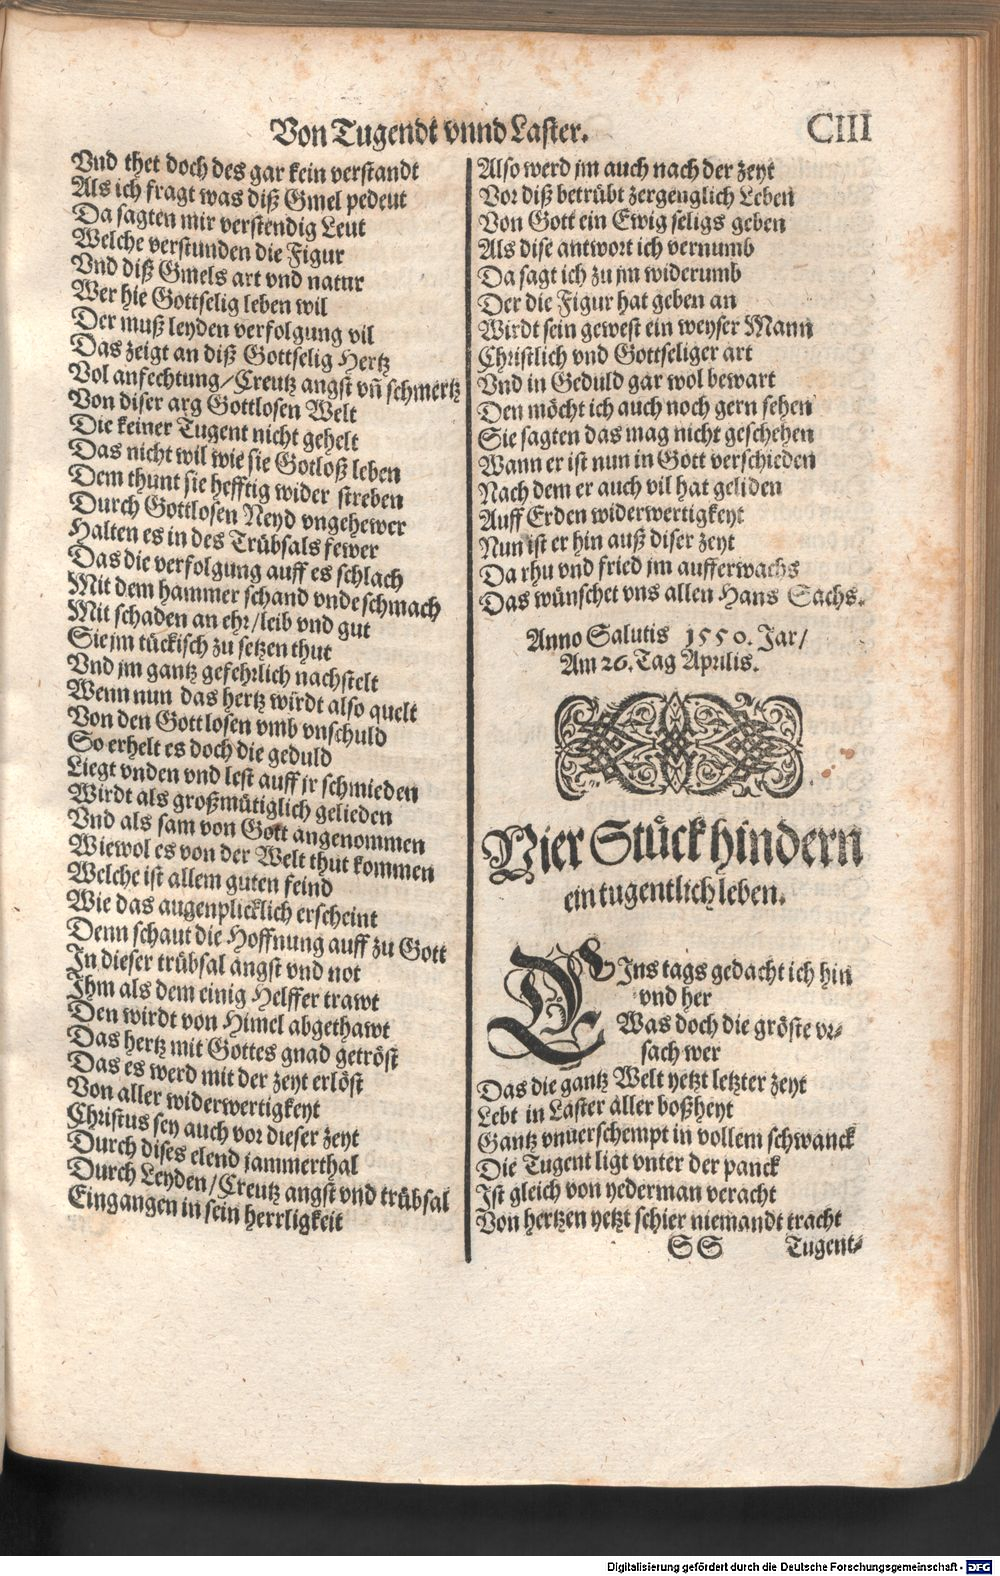 Von Tugendt vnnd Laster.
CIII
Vnd thet doch des gar kein verstandt
Als ich fragt was diß Gmel pedeut
Da sagten mir verstendig Leut
Welche verstunden die Figur
Vnd diß Gmels art vnd natur
Wer hie Gottselig leben wil
Der muß leyden verfolgung vil
Das zeigt an diß Gottselig Hertz
Vol anfechtung/Creutz angst vn̄ schmertz
Von diser arg Gottlosen Welt
Die keiner Tugent nicht gehelt
Das nicht wil wie sie Gotloß leben
Dem thunt sie hefftig wider streben
Durch Gottlosen Neyd vngehewer
Halten es in des Trübsals fewer
Das die verfolgung auff es schlach
Mit dem hammer schand vnde schmach
Mit schaden an ehr/leib vnd gut
Sie jm tückisch zu setzen thut
Vnd jm gantz gefehrlich nachstelt
Wenn nun das hertz wirdt also quelt
Von den Gottlosen vmb vnschuld
So erhelt es doch die geduld
Liegt vnden vnd lest auff jr schmieden
Wirdt als großmütiglich gelieden
Vnd als sam von Gott angenommen
Wiewol es von der Welt thut kommen
Welche ist allem guten feind
Wie das augenplicklich erscheint
Denn schaut die Hoffnung auff zu Gott
In dieser trübsal angst vnd not
Ihm als dem einig Helffer trawt
Den wirdt von Himel abgethawt
Das hertz mit Gottes gnad getröst
Das es werd mit der zeyt erlöst
Von aller widerwertigkeyt
Christus sey auch vor dieser zeyt
Durch dises elend jammerthal
Durch Leyden/Creutz angst vnd trübsal
Eingangen in sein herrligkeit
Also werd jm auch nach der zeyt
Vor diß betrübt zergenglich Leben
Von Gott ein Ewig seligs geben
Als dise antwort ich vernumb
Da sagt ich zu jm widerumb
Der die Figur hat geben an
Wirdt sein gewest ein weyser Mann
Christlich vnd Gottseliger art
Vnd in Geduld gar wol bewart
Den möcht ich auch noch gern sehen
Sie sagten das mag nicht geschehen
Wann er ist nun in Gott verschieden
Nach dem er auch vil hat geliden
Auff Erden widerwertigkeyt
Nun ist er hin auß diser zeyt
Da rhu vnd fried im aufferwachs
Das wünschet vns allen Hans Sachs.
Anno Salutis 1550. Jar/
Am 26. Tag Aprilis.
Vier Stück hindern
ein tugentlich leben.
EIns tags gedacht ich hin
vnd her
Was doch die gröste vr-
sach wer
Das die gantz Welt yetzt letzter zeyt
Lebt in Laster aller boßheyt
Gantz vnuerschempt in vollem schwanck
Die Tugent ligt vnter der panck
Ist gleich von yederman veracht
Von hertzen yetzt schier niemandt tracht
SS Tugent-
Digitalisierung gefördert durch die Deutsche Forschungsgemeinschaft - DFG